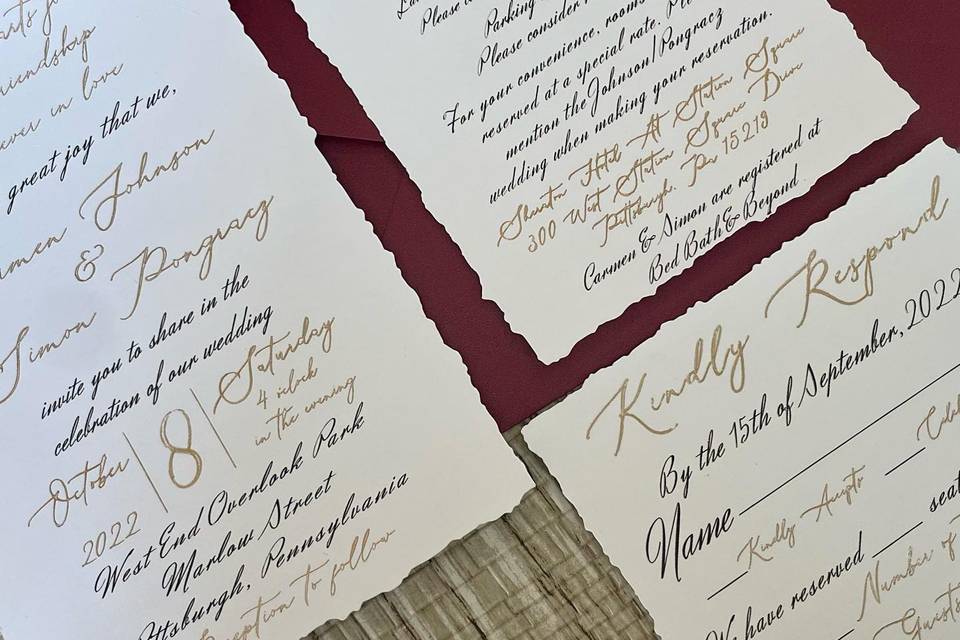 great joy that we,
Johnson
&
Simon Pongracz
invite you to share in the
celebration of our wedding
October | 8 | Saturday
4 o'clock
in the evening
2022
West End Overlook Park
Marlow Street
Pennsylvania
to follow
Please
Parking
Please consider
For your convenience, rooms
reserved at a special rate.
mention the Johnson/Pongracz
wedding when making your reservation.
Sheraton Hotel At Station Square
300 West Station Square Drive
Pittsburgh, Pa 15219
Carmen & Simon are registered at
Bed Bath & Beyond.
Kindly Respond
By the 15th of September, 2022
Name
Kindly Accepts
have reserved
seat
Number of
Guests